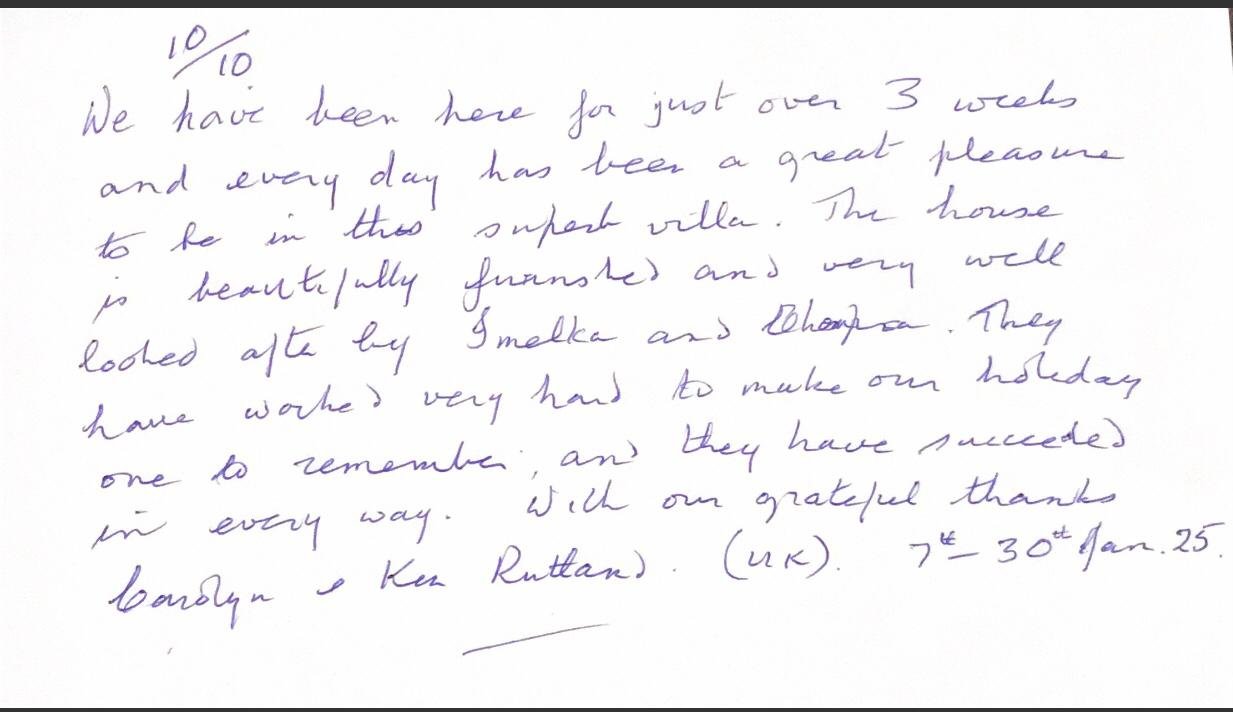 10/10
We have been here for just over 3 weeks
and every day has been a great pleasure
to be in this superb villa. The house
is beautifully furnished and very well
looked after by Imelka and . They
have worked very hard to make our holiday
one to remember, and they have succeeded
in every way. With our grateful thanks
Carolyn & Ken Rutland. (UK). 7th – 30th Jan. 25.